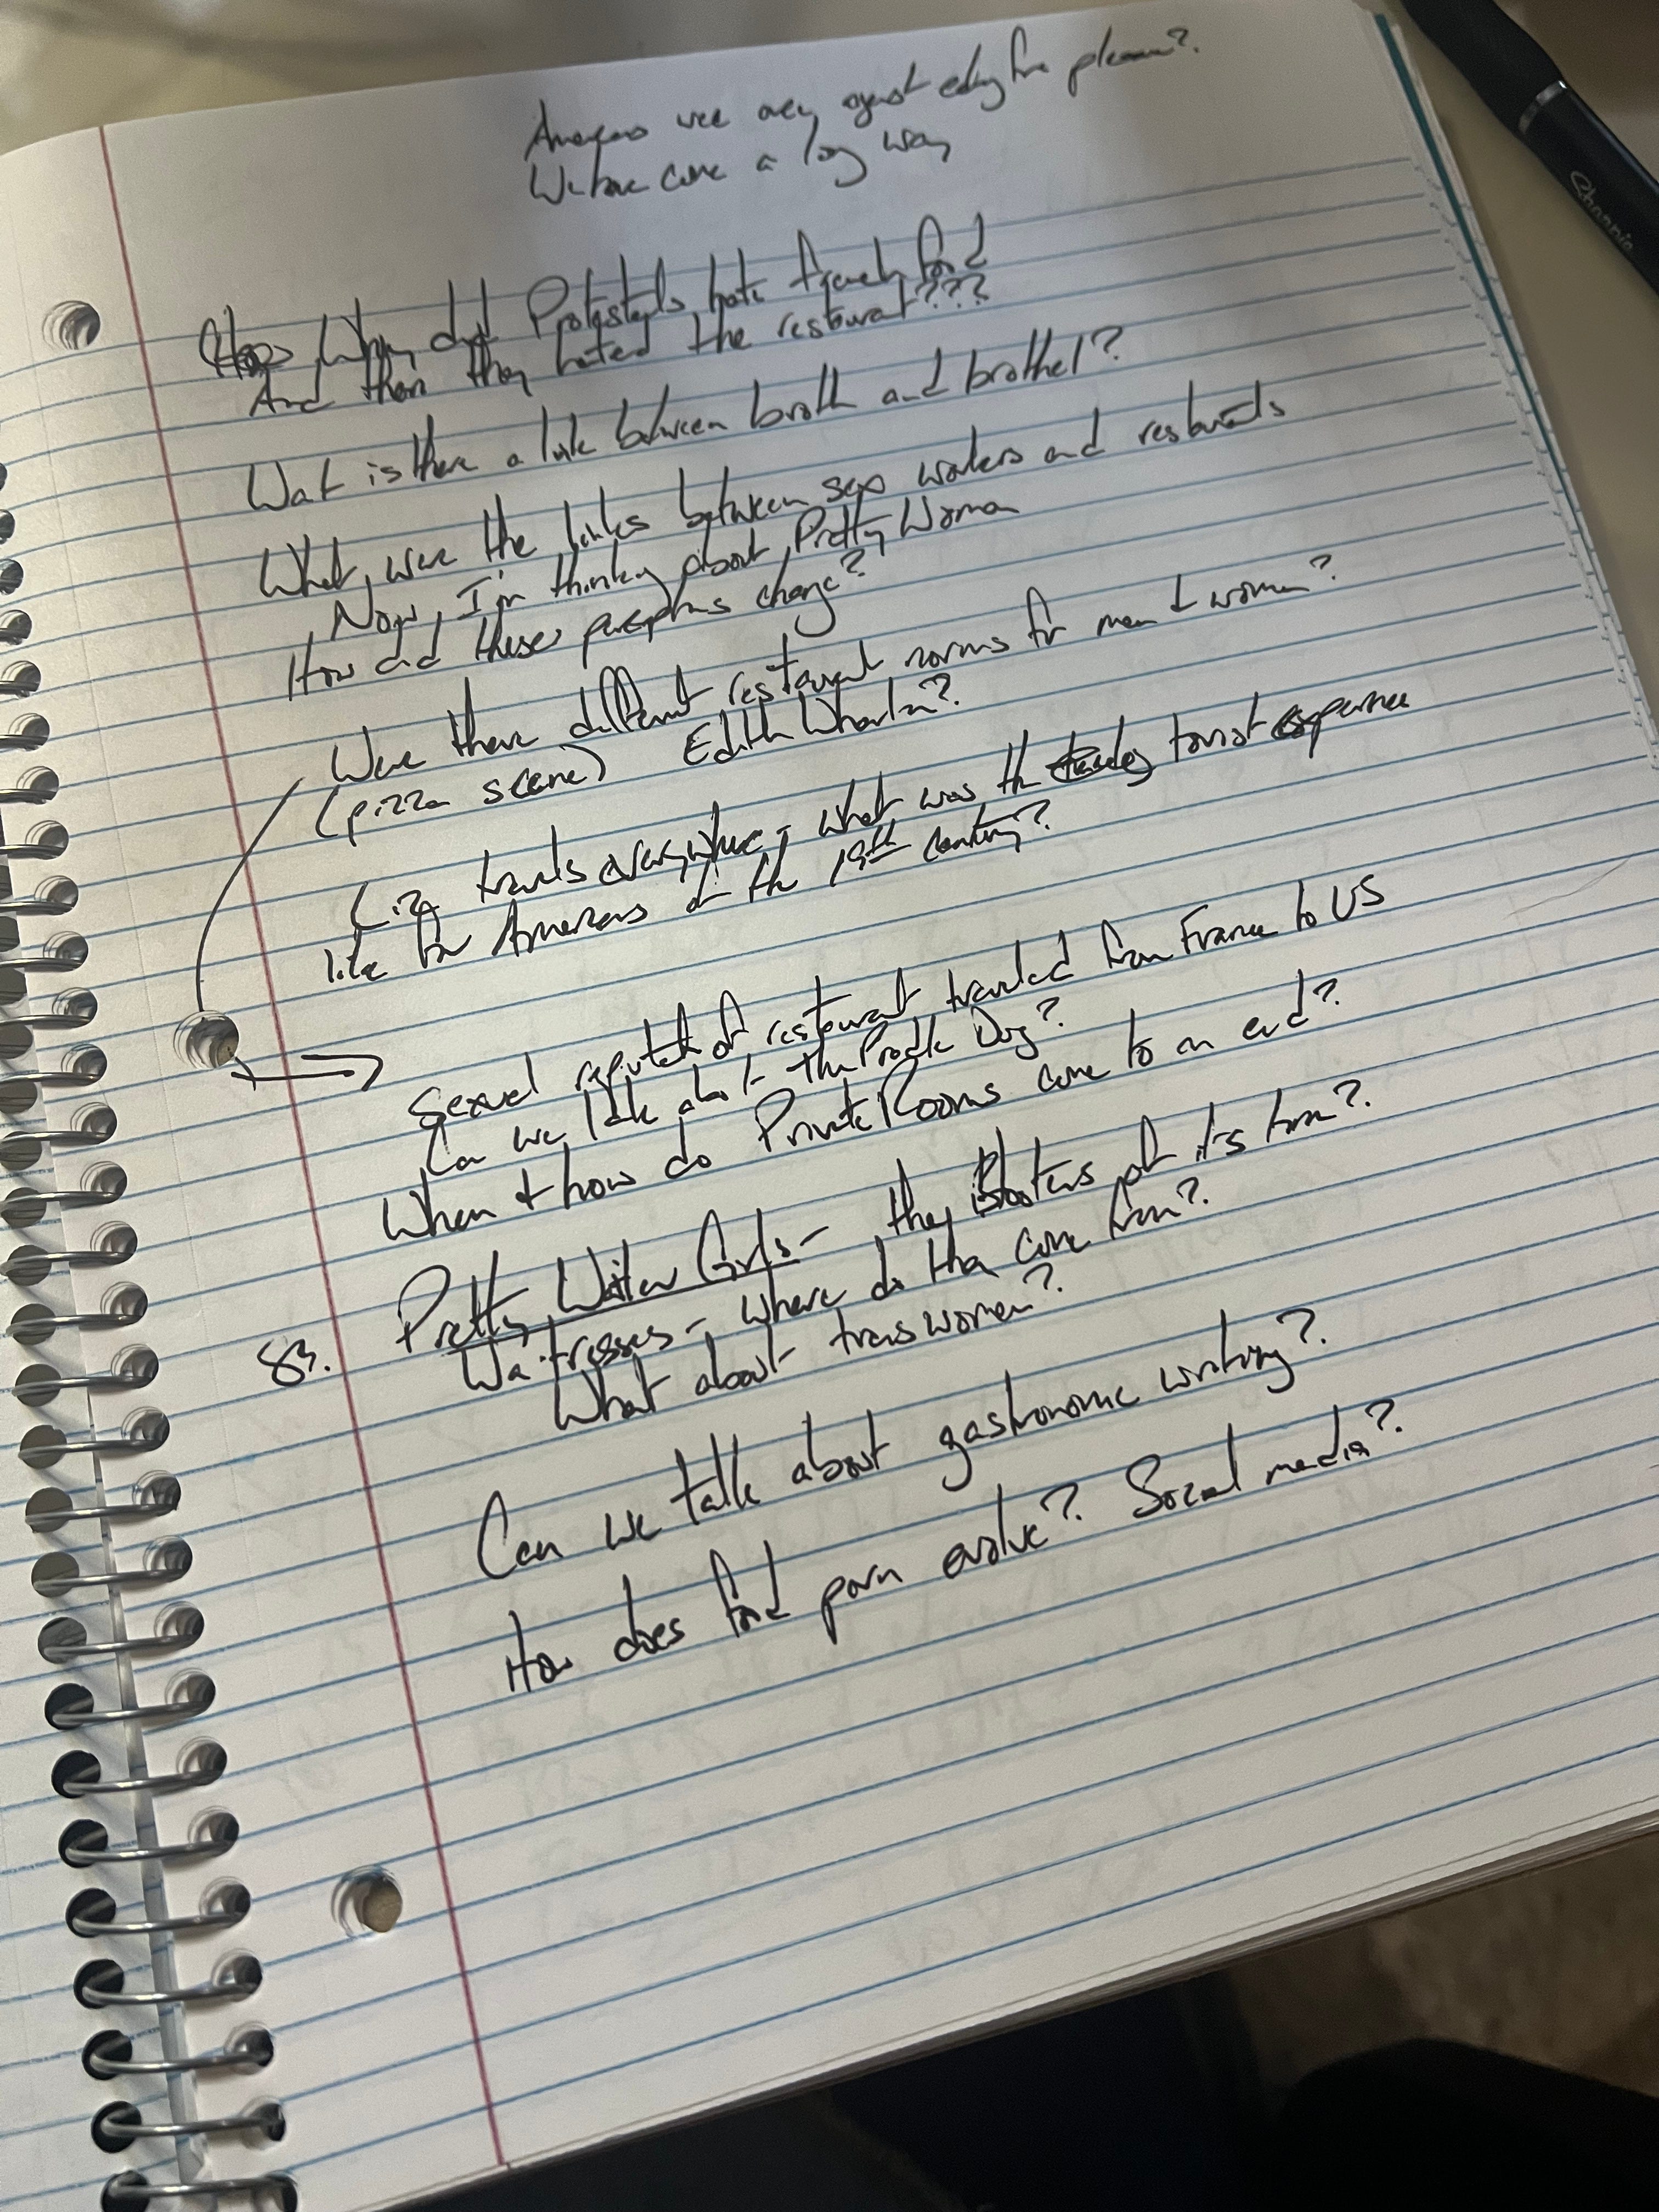 Americans were very against eating for pleasure?
We have come a long way
Why did Protestants hate French food
And then they hated the restaurant???
Wat is there a link between broth and brothel?
What were the links between sex workers and restaurants
Now, I'm thinking about Pretty Woman
How did these perceptions change?
Were there different restaurant norms for men & women?
(pizza scene) Edith Wharton?
Liz travels everywhere - what was the tourist experience
like for Americans of the 19th century?
Sexual reputation of restaurant traveled from France to US
Can we talk about The Poodle Dog?
When & how do Private Rooms come to an end?
83. Pretty Waiter Girls - the Hooters of its time?
Waitresses - where do they come from?
What about trans women?
Can we talk about gastronomic writing?
How does food porn evolve? Social media?
Sharpie